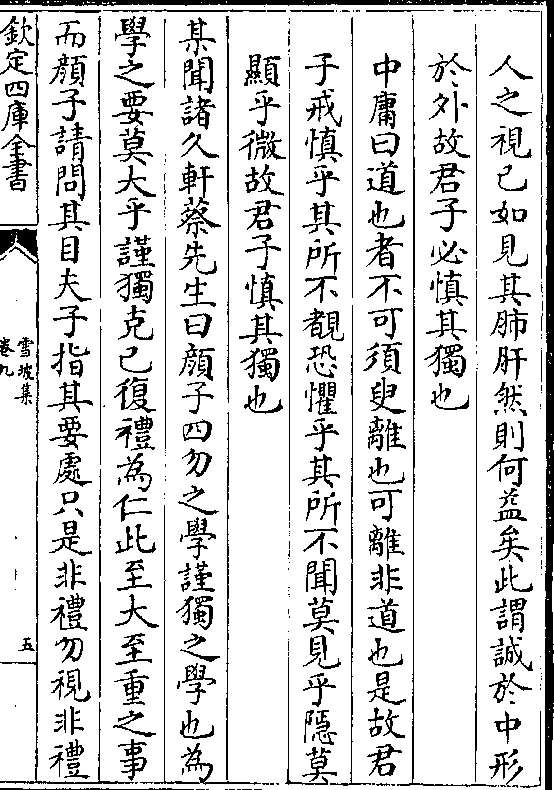 人之視已如見其肺肝然則何益矣此謂誠於中形
於外故君子必慎其獨也
中庸曰道也者不可須臾離也可離非道也是故君
子戒慎乎其所不覩恐懼乎其所不聞莫見乎隱莫
顯乎微故君子慎其獨也
某聞諸久軒蔡先生曰顔子四勿之學謹獨之學也為
學之要莫大乎謹獨克已復禮為仁此至大至重之事
而顔子請問其目夫子指其要處只是非禮勿視非禮
欽定四庫全書
雪坡集
卷九
五